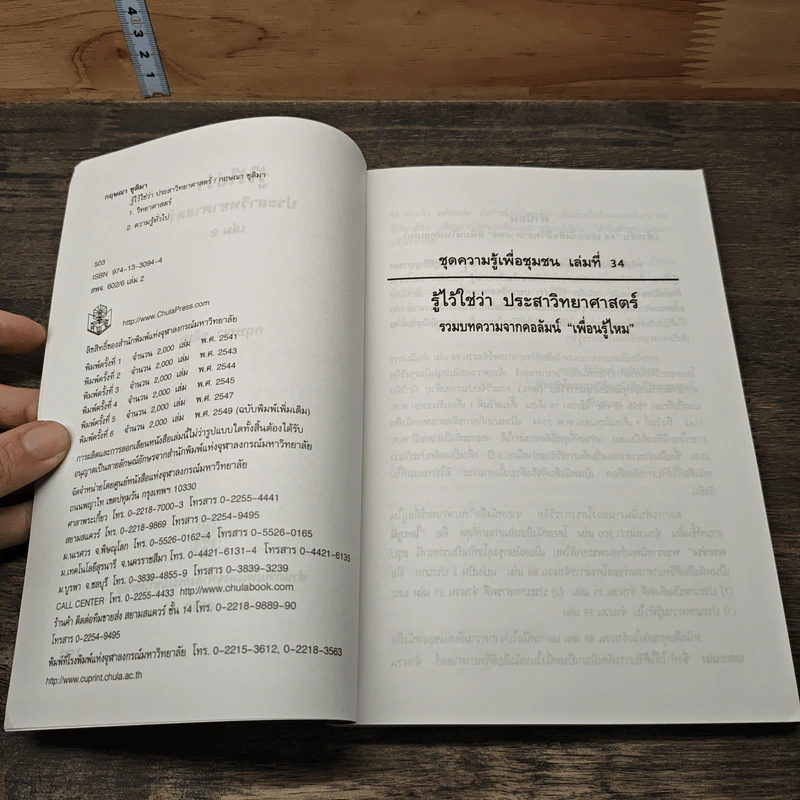 4 3 2 1
กฤษณา ชุติมา
รู้ไว้ใช่ว่า ประสาวิทยาศาสตร์ / กฤษณา ชุติมา
1. วิทยาศาสตร์
2. ความรู้ทั่วไป
503
ISBN 974-13-3094-4
สพจ. 602/6 เล่ม 2
http://www.ChulaPress.com
ลิขสิทธิ์ของสำนักพิมพ์แห่งจุฬาลงกรณ์มหาวิทยาลัย
พิมพ์ครั้งที่ 1 จำนวน 2,000 เล่ม พ.ศ. 2541
พิมพ์ครั้งที่ 2 จำนวน 2,000 เล่ม พ.ศ. 2543
พิมพ์ครั้งที่ 3 จำนวน 2,000 เล่ม พ.ศ. 2544
พิมพ์ครั้งที่ 4 จำนวน 2,000 เล่ม พ.ศ. 2545
พิมพ์ครั้งที่ 5 จำนวน 2,000 เล่ม พ.ศ. 2547
พิมพ์ครั้งที่ 6 จำนวน 2,000 เล่ม พ.ศ. 2549 (ฉบับพิมพ์เพิ่มเติม)
การผลิตและการลอกเลียนหนังสือเล่มนี้ไม่ว่ารูปแบบใดทั้งสิ้นต้องได้รับ
อนุญาตเป็นลายลักษณ์อักษรจากสำนักพิมพ์แห่งจุฬาลงกรณ์มหาวิทยาลัย
จัดจำหน่ายโดยศูนย์หนังสือแห่งจุฬาลงกรณ์มหาวิทยาลัย
ถนนพญาไท เขตปทุมวัน กรุงเทพฯ 10330
ศาลาพระเกี้ยว โทร. 0-2218-7000-3 โทรสาร 0-2255-4441
สยามสแควร์ โทร. 0-2218-9869 โทรสาร 0-2254-9495
ม.นเรศวร จ.พิษณุโลก โทร. 0-5526-0162-4 โทรสาร 0-5526-0165
ม.เทคโนโลยีสุรนารี จ.นครราชสีมา โทร. 0-4421-6131-4 โทรสาร 0-4421-6135
ม.บูรพา จ.ชลบุรี โทร. 0-3839-4855-9 โทรสาร 0-3839-3239
CALL CENTER โทร. 0-2255-4433 http://www.chulabook.com
ร้านค้า ติดต่อทีมขายส่ง สยามสแควร์ ชั้น 14 โทร. 0-2218-9889-90
โทรสาร 0-2254-9495
พิมพ์ที่โรงพิมพ์แห่งจุฬาลงกรณ์มหาวิทยาลัย โทร. 0-2215-3612, 0-2218-3563
http://www.cuprint.chula.ac.th
ชุดความรู้เพื่อชุมชน เล่มที่ 34
รู้ไว้ใช่ว่า ประสาวิทยาศาสตร์
รวมบทความจากคอลัมน์ "เพื่อนรู้ไหม"